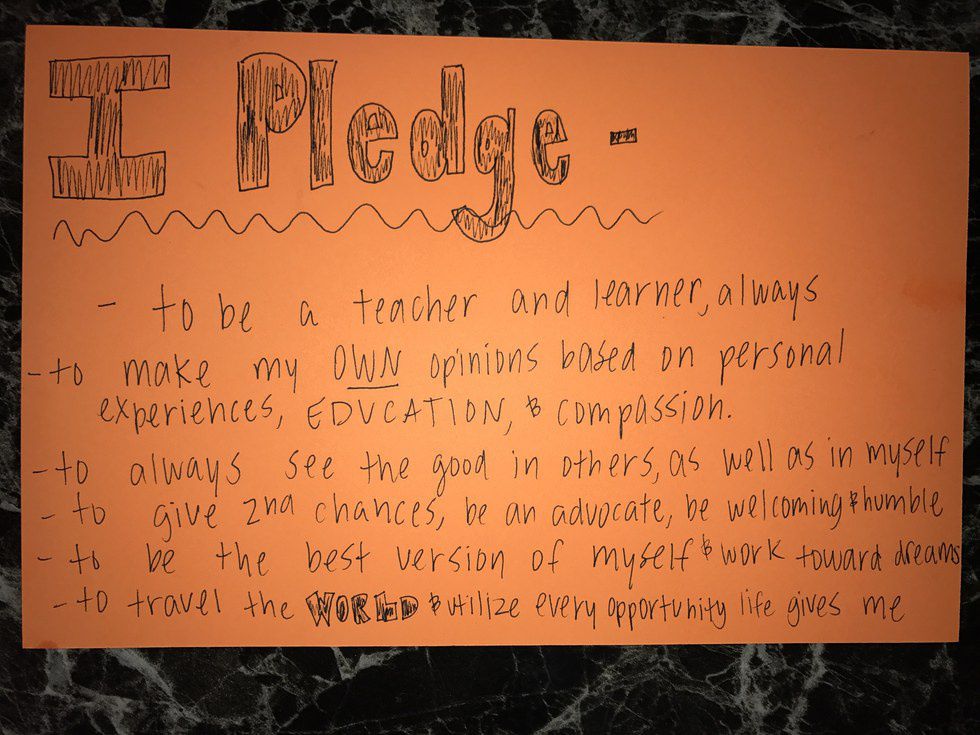 I Pledge -
- to be a teacher and learner, always
- to make my OWN opinions based on personal
experiences, EDUCATION, & compassion.
- to always see the good in others, as well as in myself
- to give 2nd chances, be an advocate, be welcoming & humble
- to be the best version of myself & work toward dreams
- to travel the WORLD & utilize every opportunity life gives me